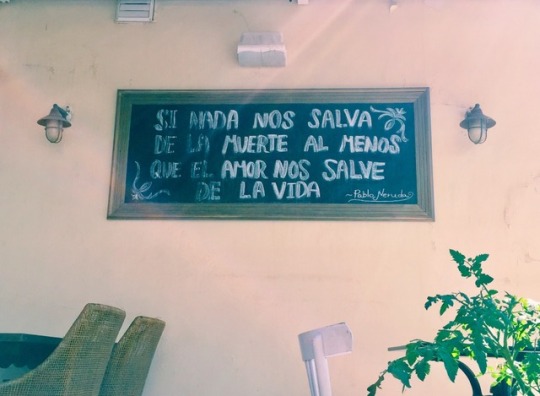 SI NADA NOS SALVA
DE LA MUERTE AL MENOS
QUE EL AMOR NOS SALVE
DE LA VIDA
~Pablo Neruda